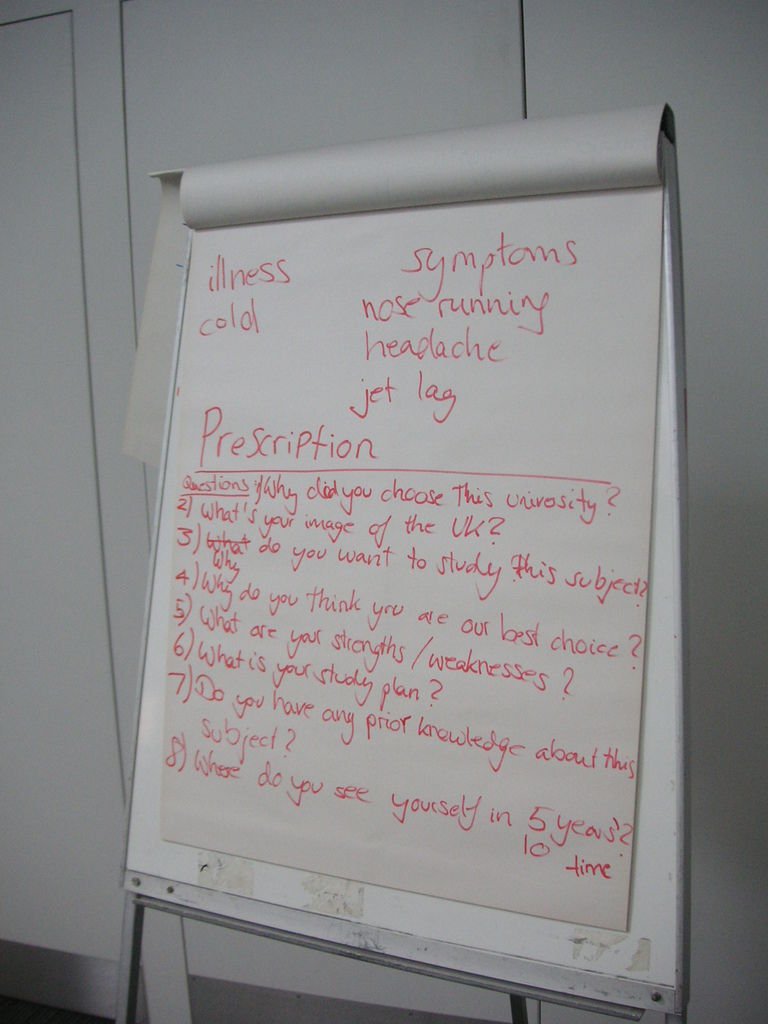 illness symptoms
cold nose running
headache
jet lag
Prescription
Questions: 1) Why did you choose This university?
2) What's your image of the UK?
3) What do you want to study this subject?
Why
4) Why do you think you are our best choice?
5) What are your strengths / weaknesses?
6) What is your study plan?
7) Do you have any prior knowledge about this
subject?
8) Where do you see yourself in 5 years'?
10 time